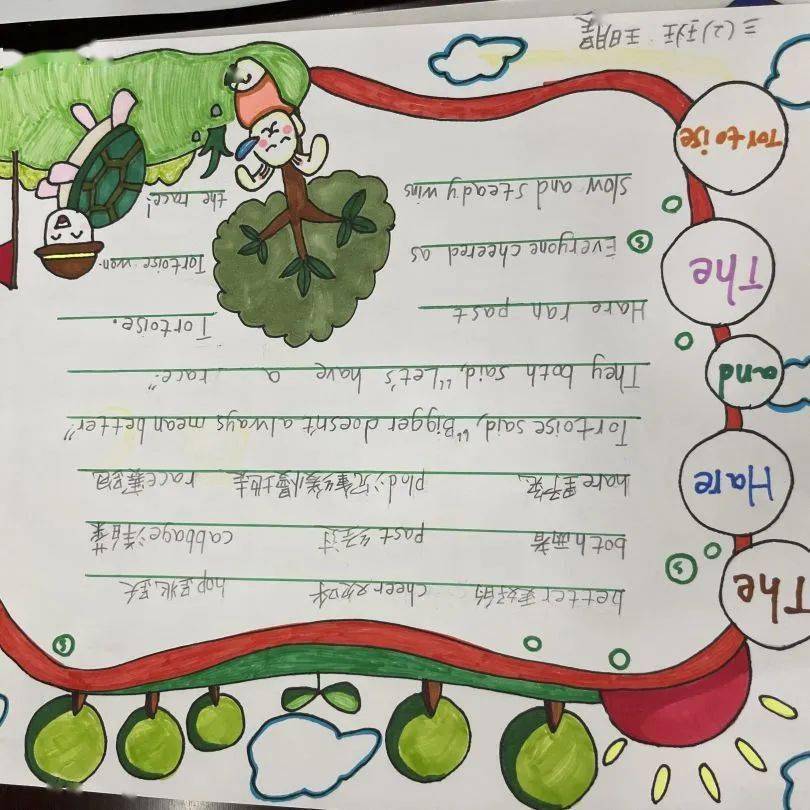 The
Hare
and
The
Tortoise
better更好的 cheer欢呼 hop跳跃
both两者 past经过 cabbage洋白菜
hare野兔 plod沉重缓慢地走 race赛跑
Tortoise said, "Bigger doesn't always mean better"
They both said, "Let's have a race."
Hare ran past Tortoise.
Everyone cheered as Tortoise won.
Slow and steady wins the race!
三(2)班